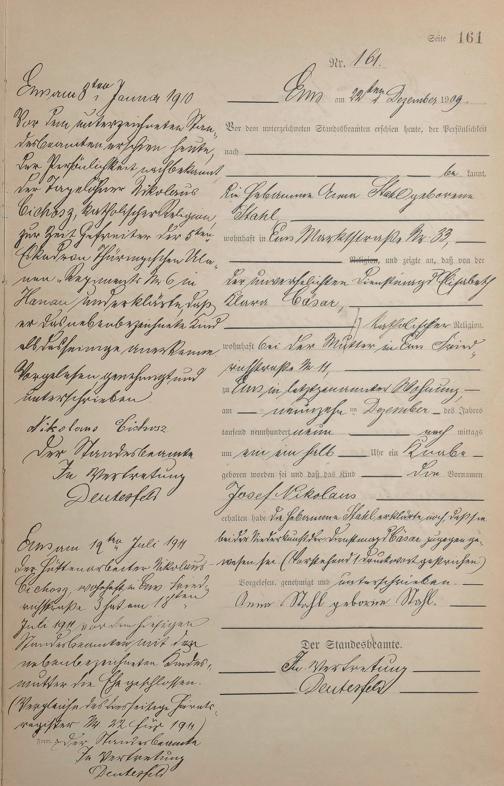 Seite 161
Nr. 161.
Ems am 22ten Dezember 1909.
Vor dem unterzeichneten Standesbeamten erschien heute, der Persönlichkeit
nach
be kannt,
die Hebamme Anna Stahl geborene
Stahl
wohnhaft in Ems Marktstraße Nr. 33,
Religion, und zeigte an, daß von der
der unverehelichten Dienstmagd Elisabeth
Klara Cäsar,
katholischer Religion,
wohnhaft bei der Mutter, in Ems Fried-
richstraße Nr. 11,
zu Ems in letztgenannter Wohnung,
am neunzehnten Dezember des Jahres
tausend neunhundert neun nach mittags
um ein ein halb Uhr ein Knabe
geboren worden sei und daß das Kind die Vornamen
Josef Nikolaus
erhalten habe. Die Hebamme Stahl erklärte noch, daß sie
bei der Niederkunft der Dienstmagd Cäsar zugegen ge-
wesen sei. (Vorstehend 1 Druckwort gestrichen)
Vorgelesen, genehmigt und unterschrieben.
Anna Stahl geborene Stahl.
Der Standesbeamte.
In Vertretung
Deutesfeld
Ems am 8ten Januar 1910
Vor dem unterzeichneten Stan-
desbeamten erschien heute,
der Persönlichkeit nach bekannt,
der Tagelöhner Nikolaus
Cichosz, katholischer Religion,
zur Zeit Gefreiter der 5ten
Eskadron Thüringischen Ula-
nen-Regiments Nr. 6, in
Hanau und erklärte, daß
er das nebenbezeichnete Kind
als das seinige anerkenne
Vorgelesen genehmigt und
unterschrieben
Nikolaus Cichosz
Der Standesbeamte
In Vertretung
Deutesfeld
Ems am 19ten Juli 1911
Der Hüttenarbeiter Nikolaus
Cichosz, wohnhaft in Ems Fried-
richstraße 3 hat am 18ten
Juli 1911 vor dem hiesigen
Standesbeamten mit der
nebenbezeichneten Kindes-
mutter die Ehe geschlossen.
(Vergleiche das diesseitige Heirats-
register Nr. 22 für 1911)
Der Standesbeamte
In Vertretung
Deutesfeld